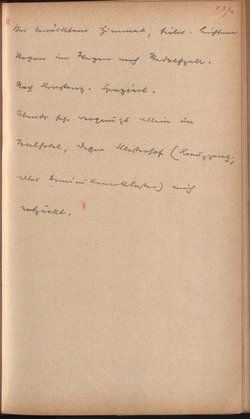 Bei bewölktem Himmel, teilw. leichtem
Regen im Wagen nach Radolfzell.
Nach Konstanz. Spaziert.
Abends sehr vergnügt allein im
Inselhotel, dessen Klosterhof (Kreuzgang;
altes Dominikanerkloster) mich
entzückt.